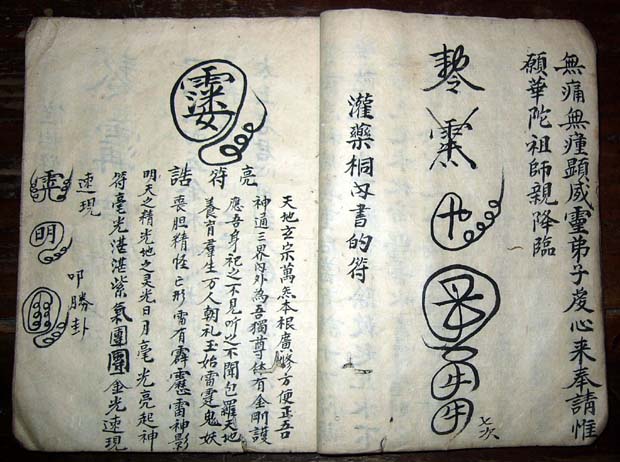 無痛無瘇顯威靈弟子虔心来奉請惟
願華陀祖師親降臨
七次
灌藥桐内書的符
亮符誥
天地玄宗萬炁本根廣修方便正吾口
神通三界內外為吾獨尊体有金剛護
應吾身視之不見听之不聞包羅天地
養育羣生万人朝礼玉始雷霆鬼妖
喪胆精怪亡形雷有霹靂雷神影
明天之精光地之灵光日月毫光亮起神
符毫光湛湛紫氣團團金光速現
速現
叩勝卦
明